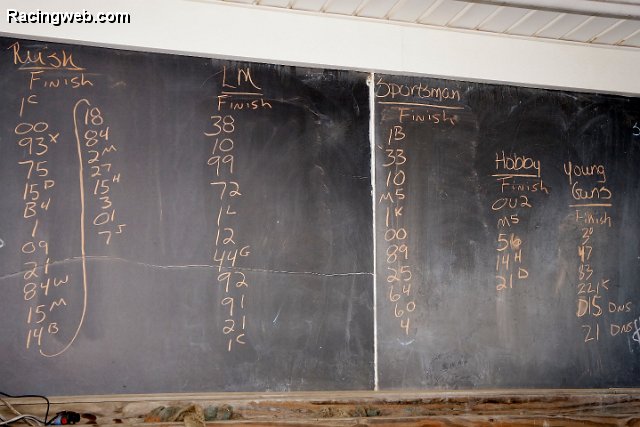 Racingweb.com
Rush
Finish
1C
00
93x
75
15D
B4
1
09
21
84W
15M
14B
18
84
2M
27
15H
3
01
7J
LM
Finish
38
10
99
72
1L
12
44G
92
91
21
1C
Sportsman
Finish
1B
33
10
M5
1K
00
89
25
64
60
4
Hobby
Finish
OU2
M5
56
14H
21D
Young
Guns
Finish
47
83
221K
D15 DNS
21 DNS